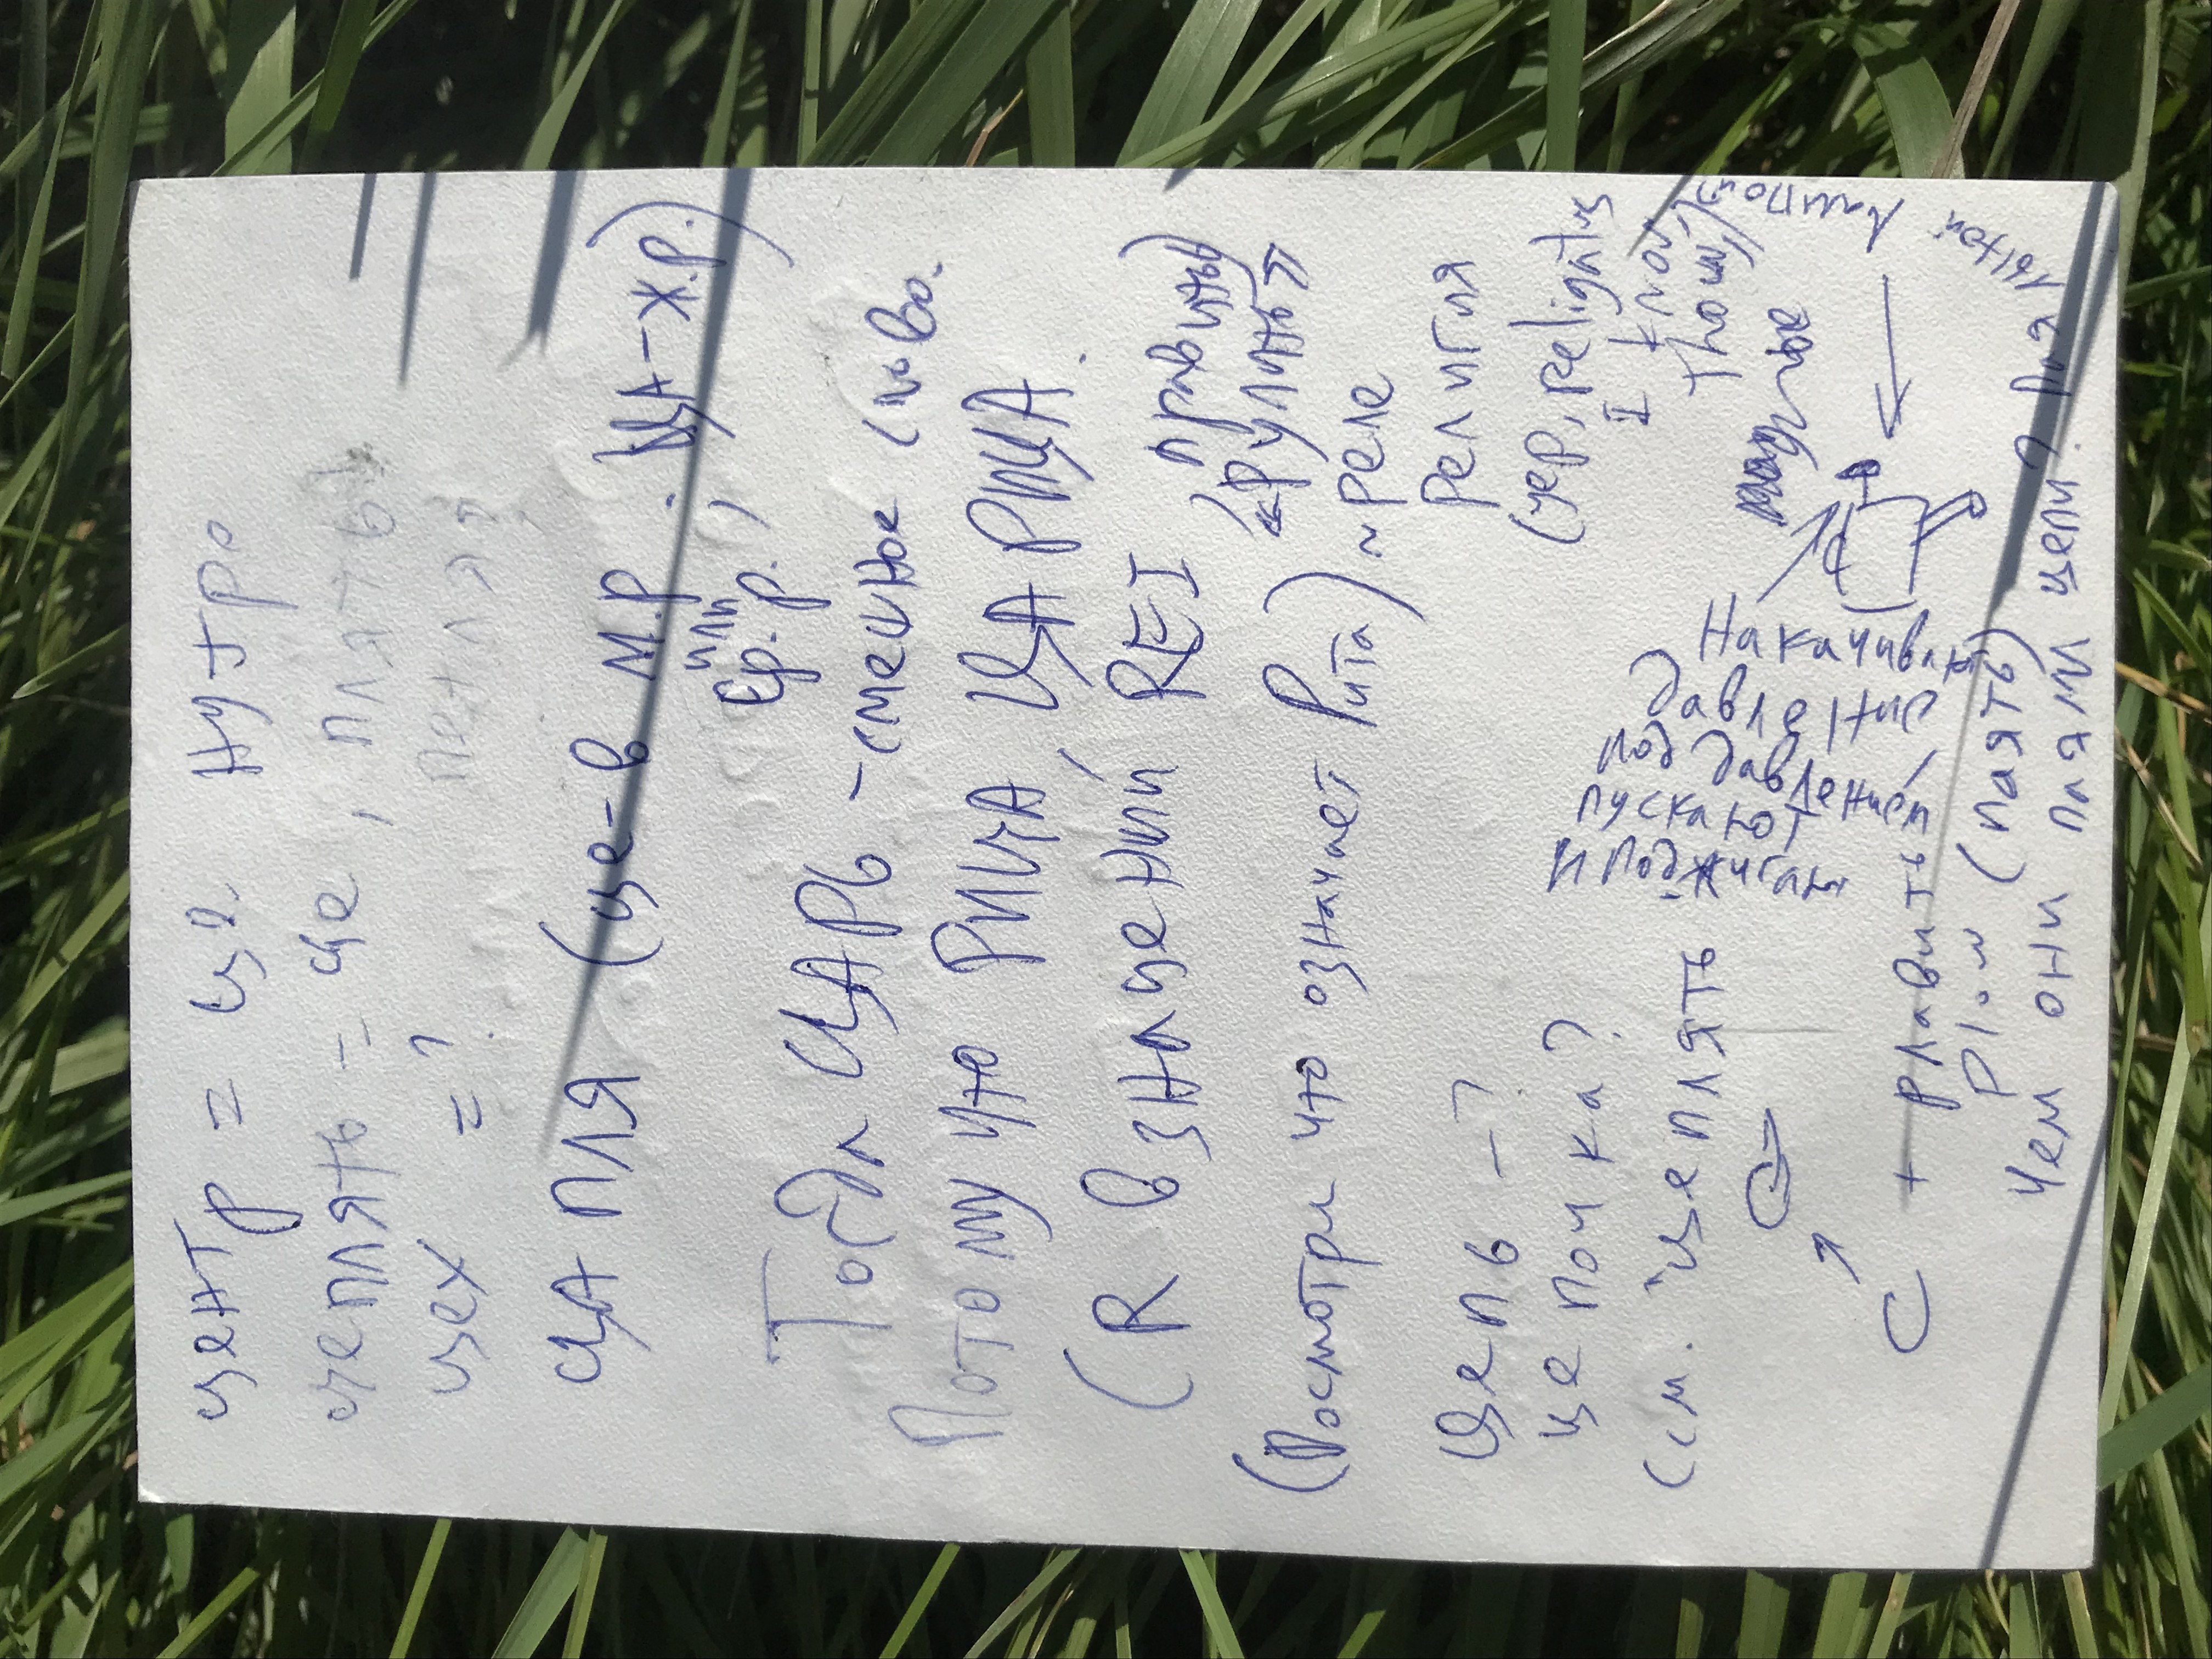 центр = це нутро
цеплять = це, плять!
цех = ? петля?
ЦАПЛЯ (це-в м.р или ср.р. ; ЦА-ж.р.)
Тогда ЦАРЬ - смешное слово.
Потому что РИЦА, ЦАРИЦА.
(R в значений REI, править)
«Рулить»
(Посмотри что означает Рита) ~ реле
религия
(yep, religatus
I know
thou)
Цепь - ?
це почка?
(см. цеплять
С + плавить
plow (паять)
Чем они паяли цепи? Паяльной лампой
Накачивают
давление
под давлением
пускают
и поджигают